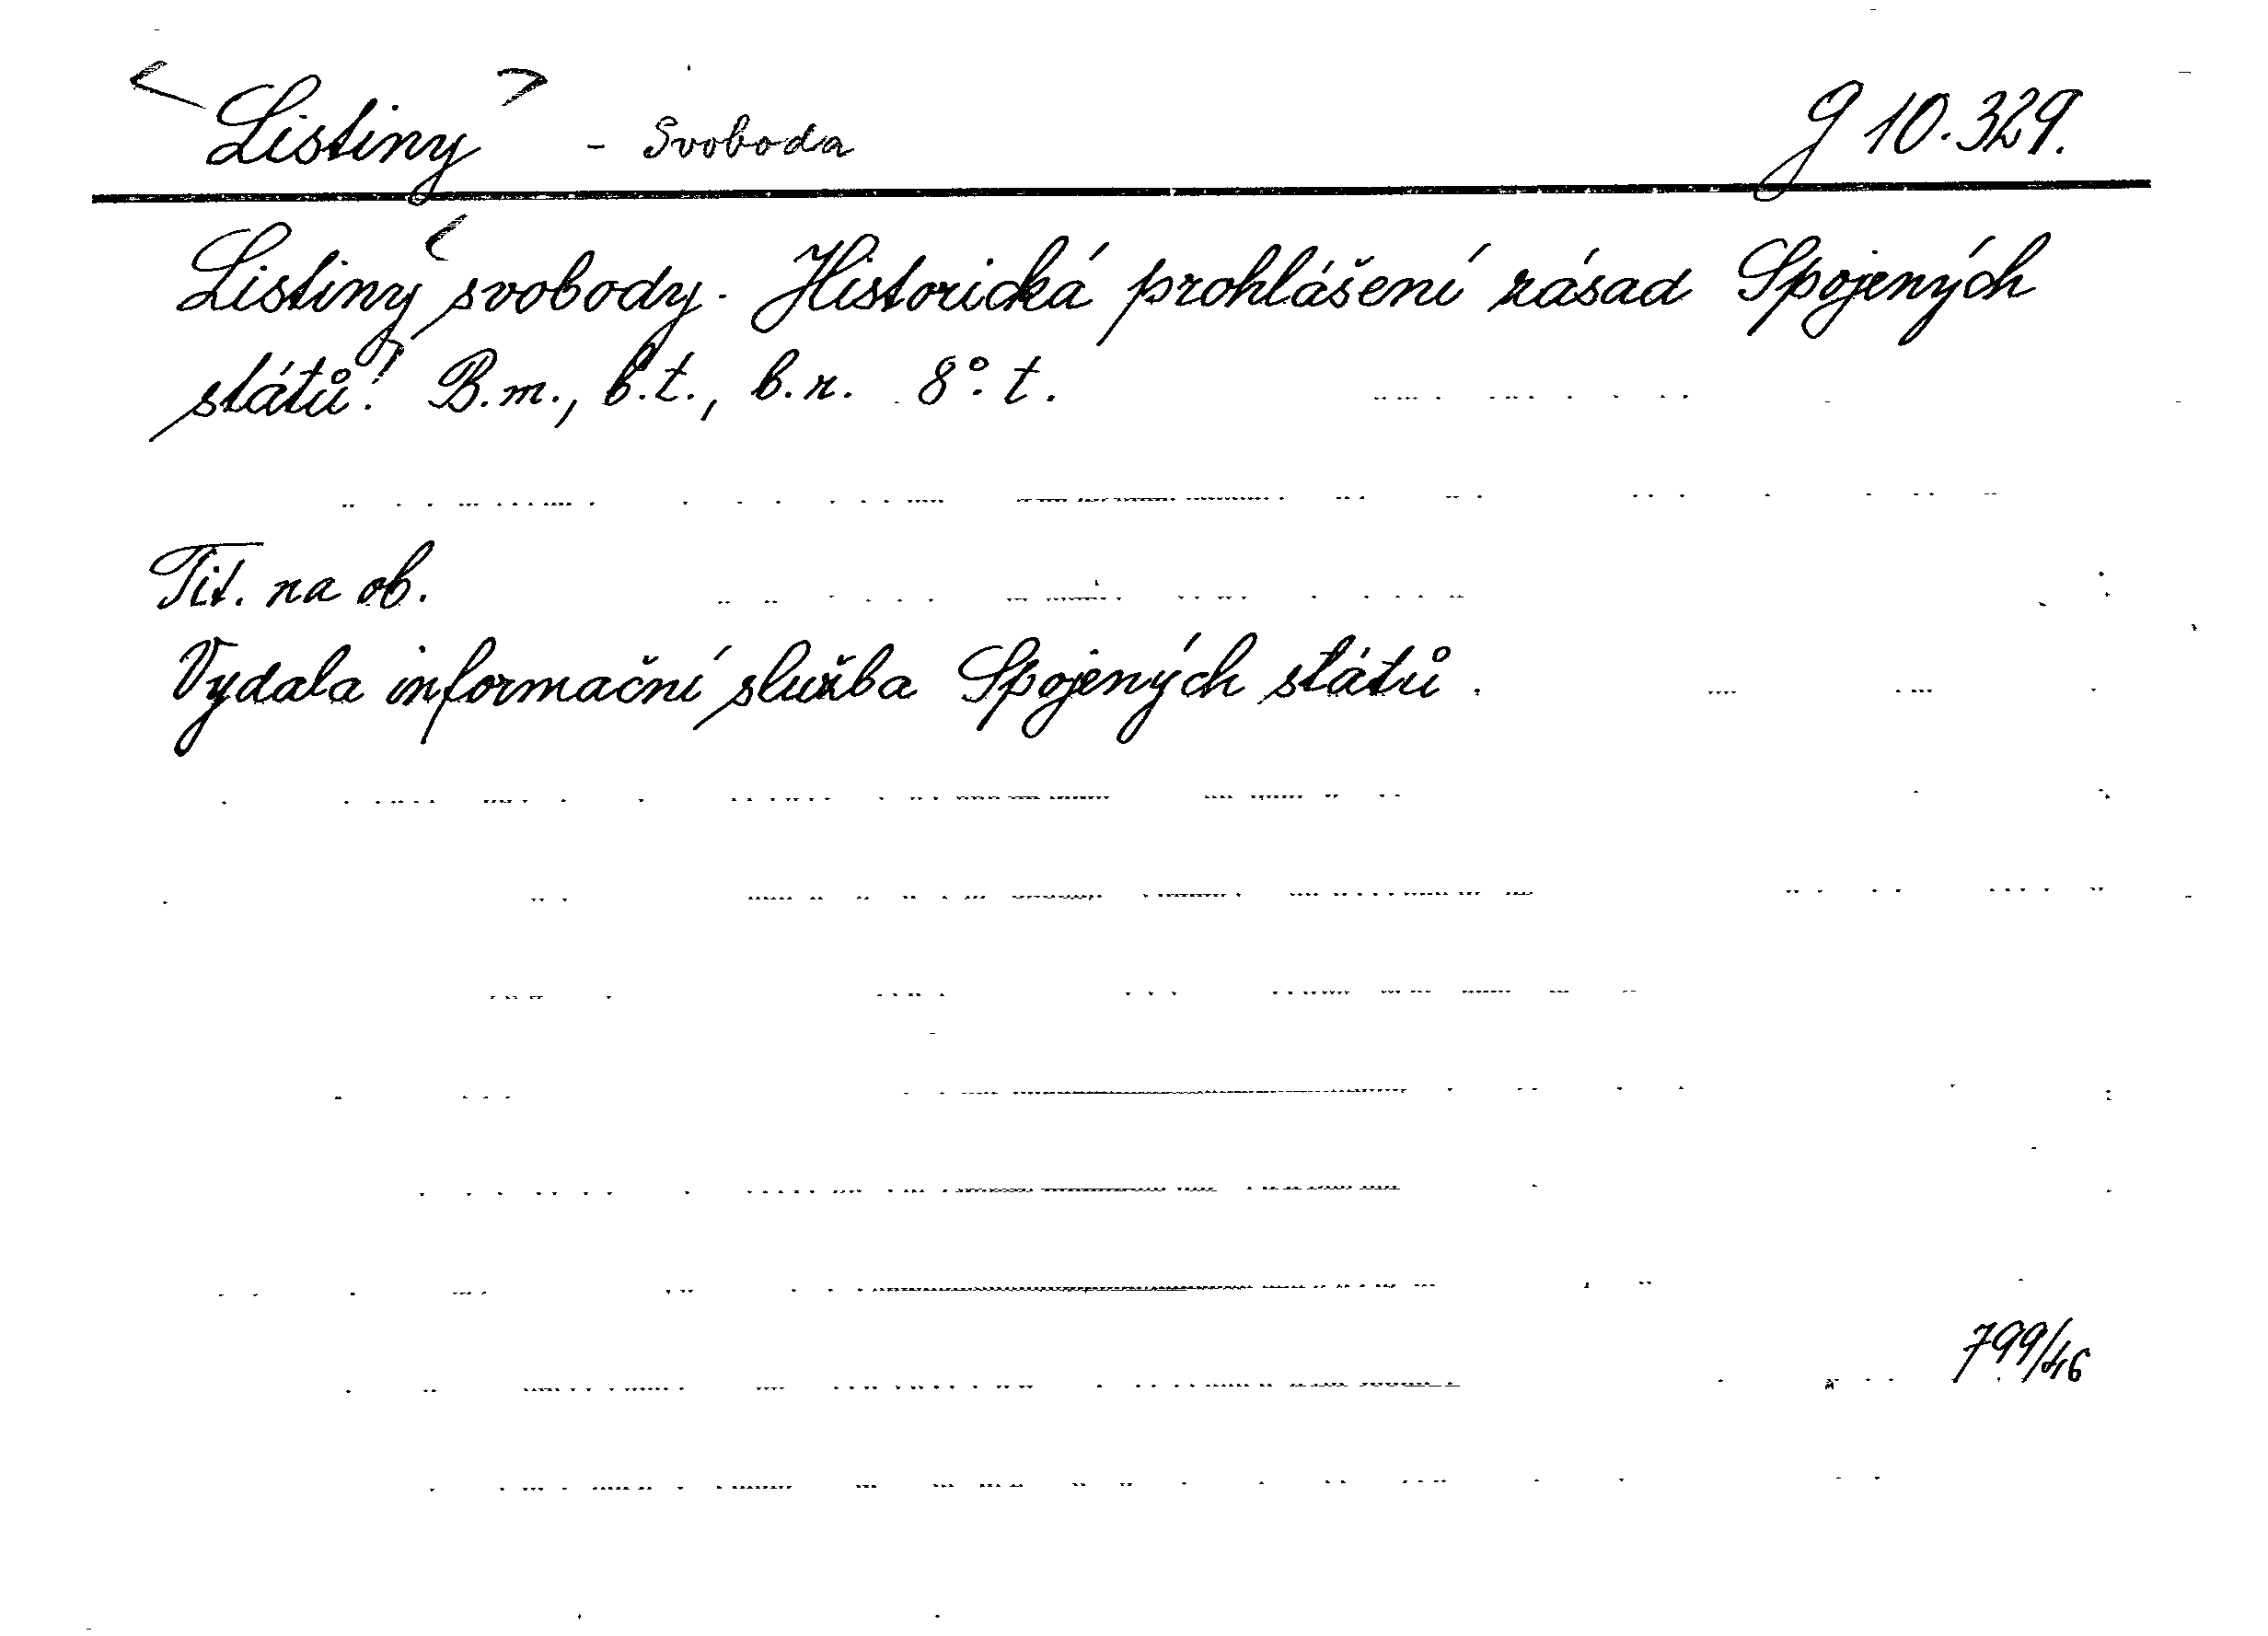 <Listiny> - Svoboda g 10.329.
Listiny svobody. Historická prohlášení zásad Spojených
států! B.m., b.t., b.r. 8°. t.
Tit. na ob.
Vydala informační služba Spojených států.
799/46